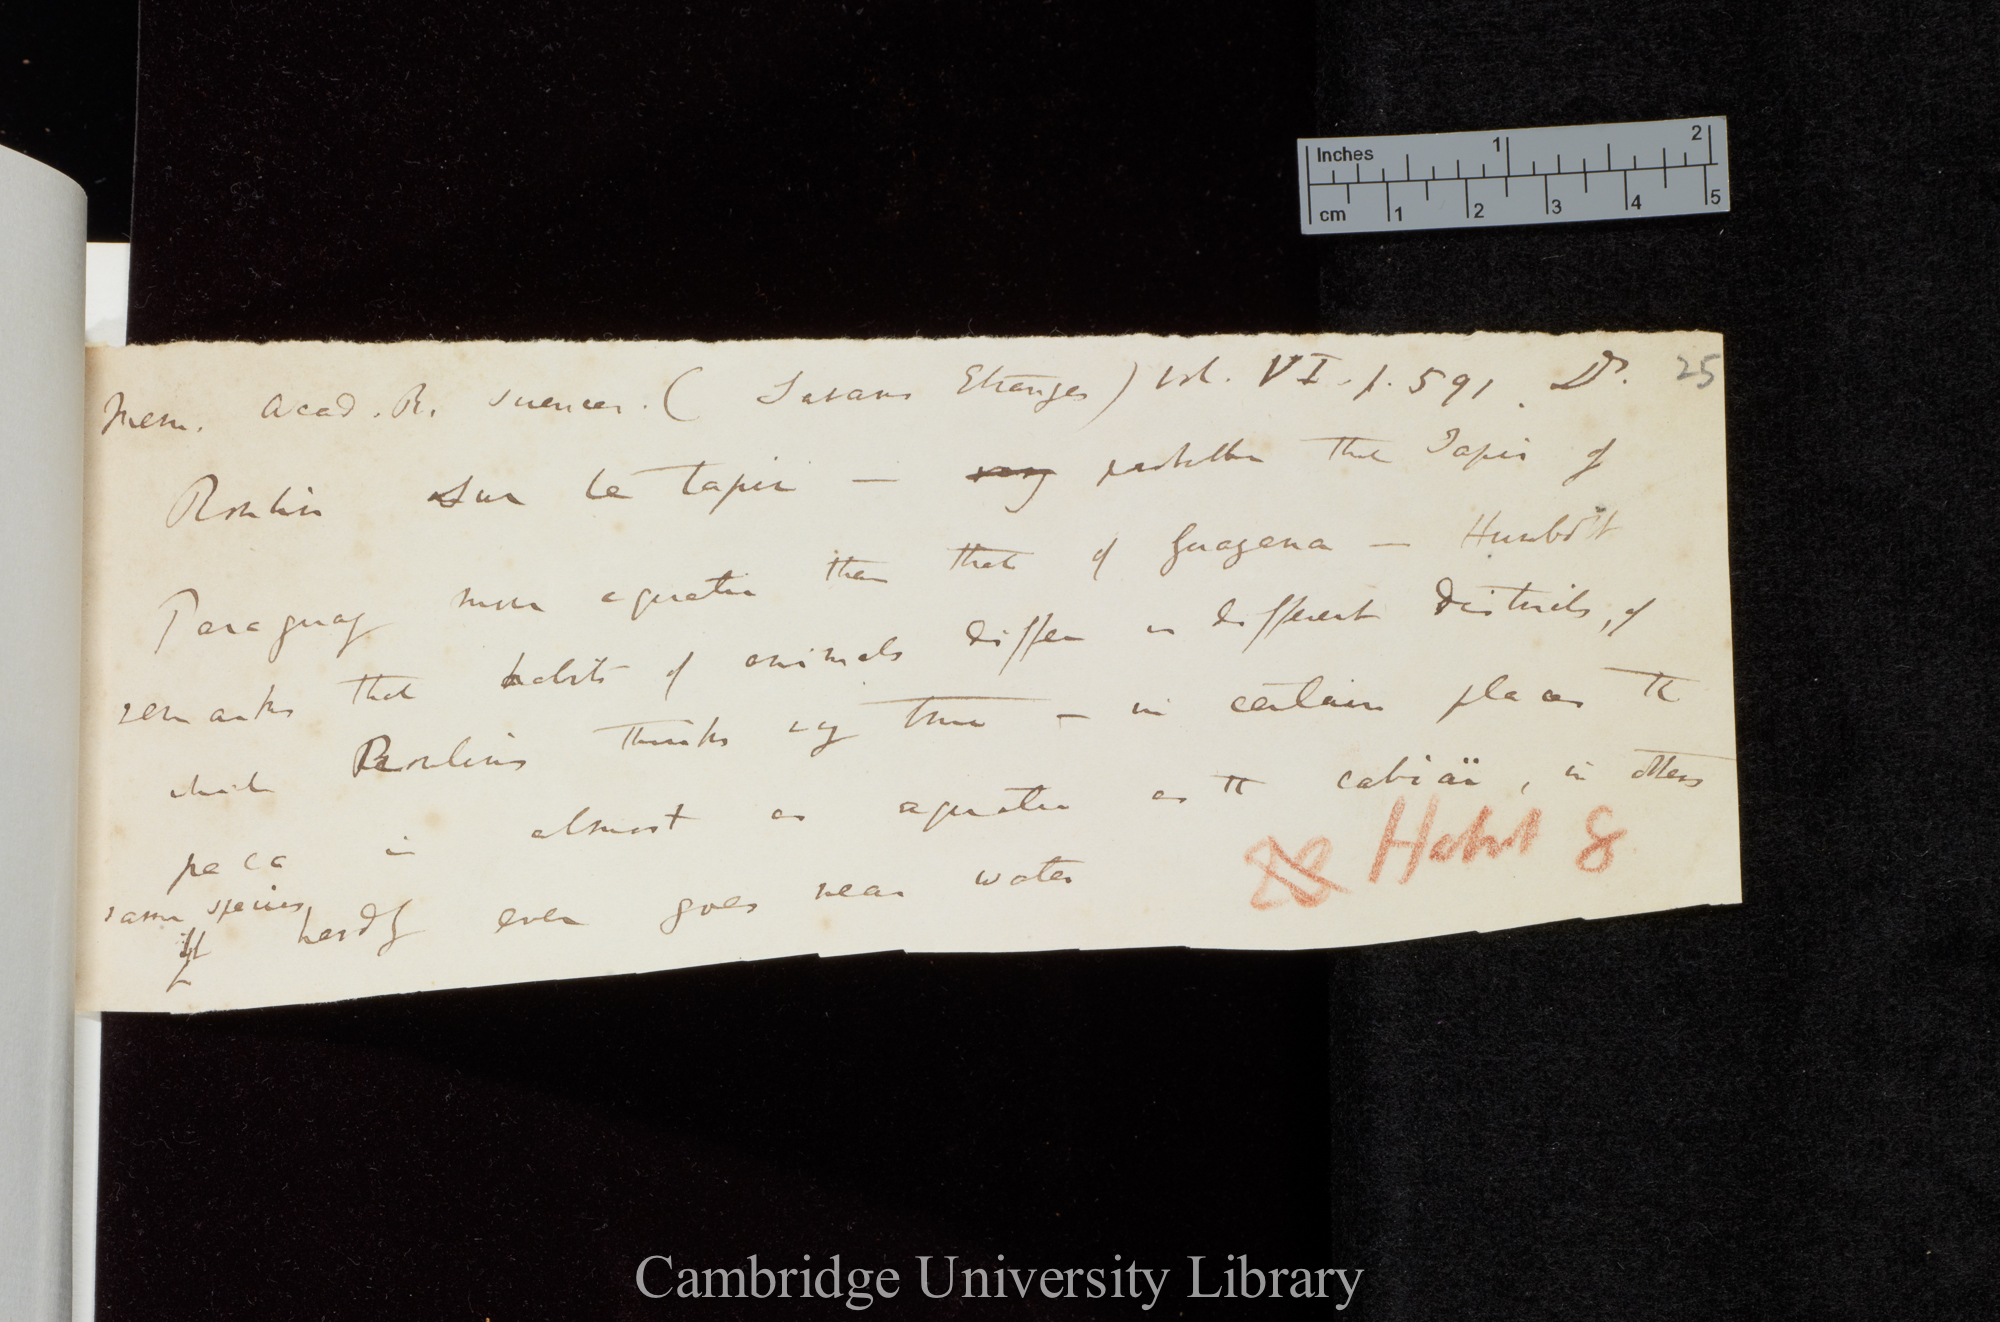 Inches 1 2
cm 1 2 3 4 5
25
Mem. Acad. R. Sciences. (Savans Etranges) Vol. VI. p. 591. Dr.
Roulin Sur le tapir — that Tapir of
Paraguay more aquatic than that of Guayana — Humboldt
remarks that habits of animals differ in different districts, of
which Roulin thinks very true — in certain places the
paca is almost as aquatic as the cabiaï, in others
same species
hardly ever goes near water
Habit 8
Cambridge University Library